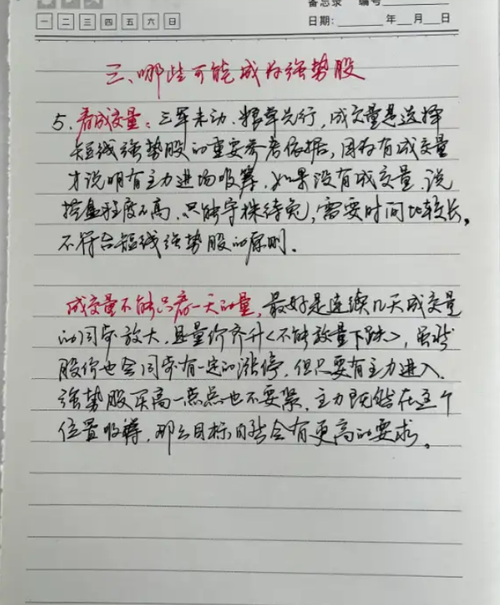 备忘录 编号
一 二 三 四 五 六 日
日期: 年 月 日
三、哪些可能成为强势股
5、看成交量:三军未动、粮草先行,成交量是选择
短线强势股的重要参考依据,因为有成交量
才说明有主力进场吸筹、如果没有成交量、说
控盘程度不高、只能守株待兔,需要时间比较长,
不符合短线强势股的原则.
成交量不能只看一天的量,最好是连续几天成交量
的同步放大,且量价齐升<不能放量下跌>,虽然
股价也会同步有一定的涨停,但只要有主力进入、
强势股买高一点点也不要紧、主力既然在这个
位置收筹,那么目标自然会有更高的要求。